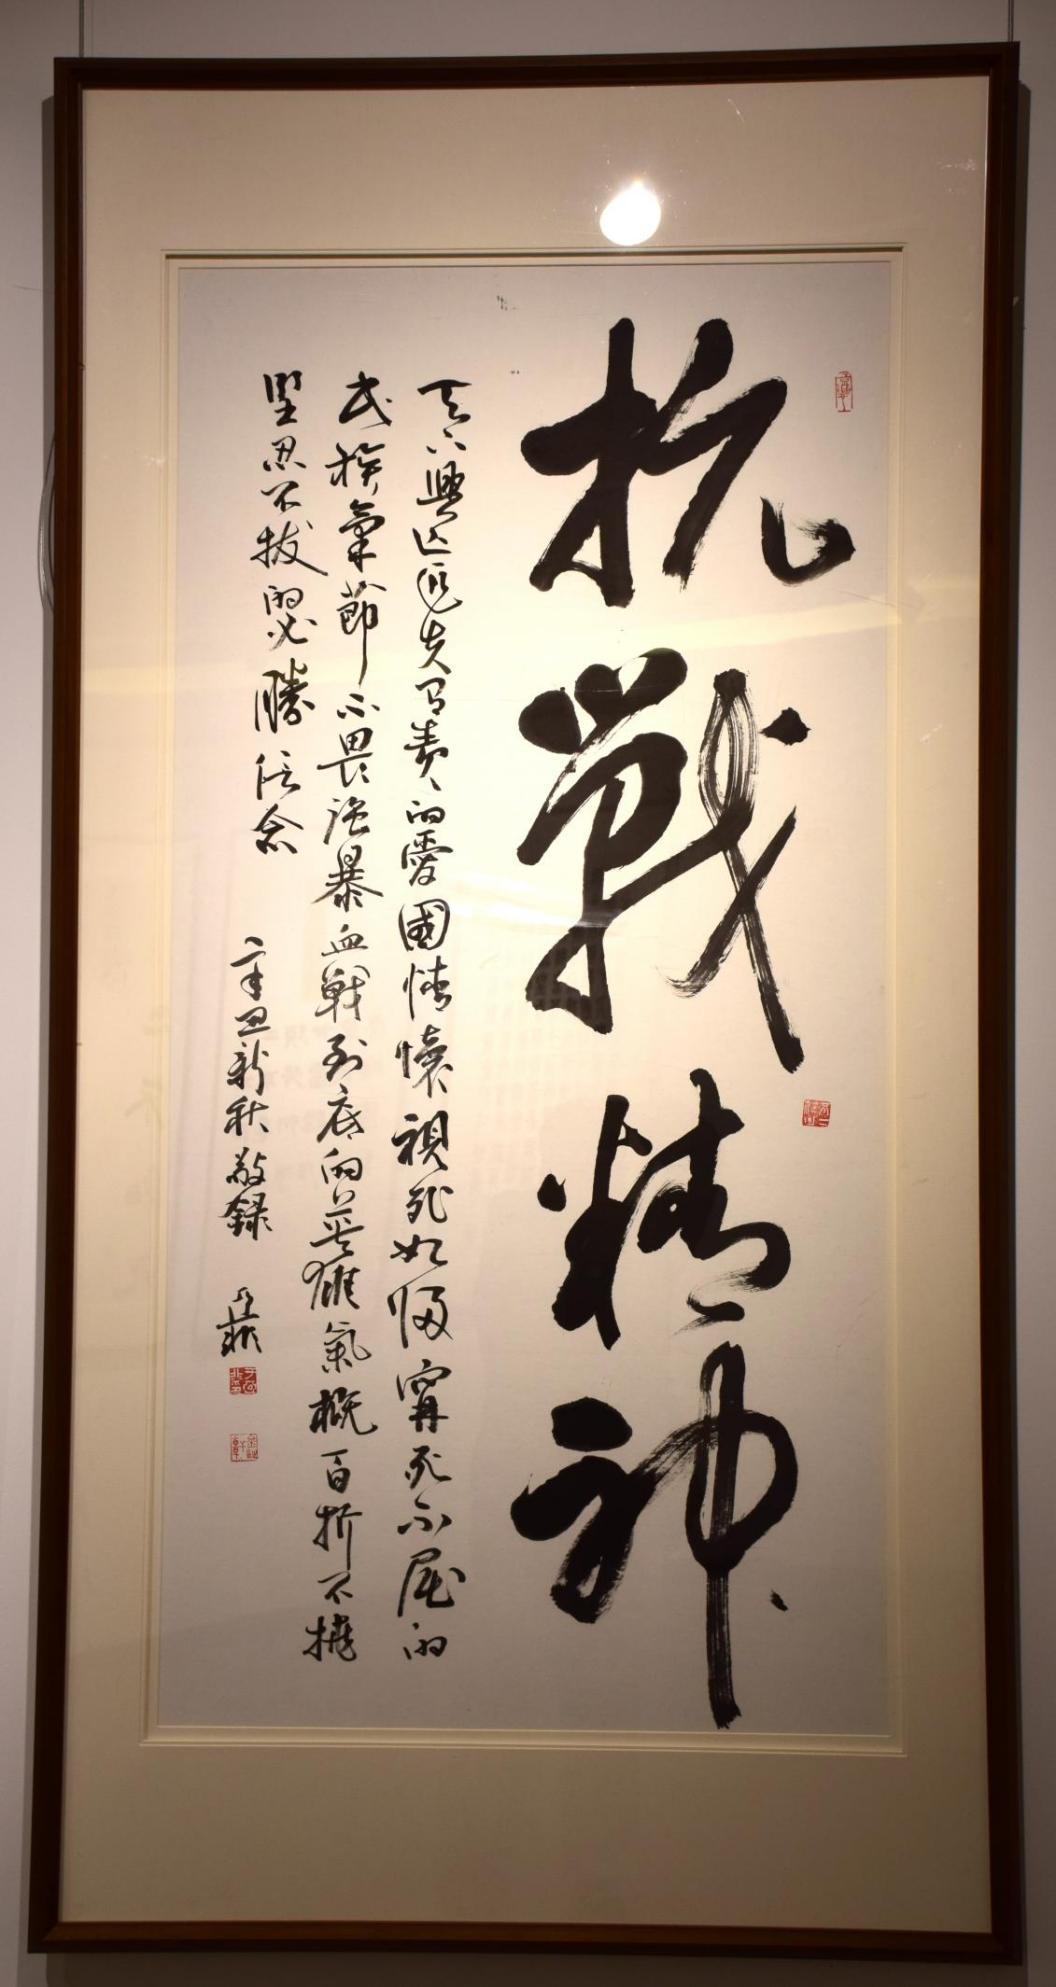 抗戰精神
天下興亡匹夫有責的愛國情懷視死如歸寧死不屈的
民族氣節不畏強暴血戰到底的英雄氣概百折不撓
堅忍不拔的必勝信念
辛丑新秋敬錄